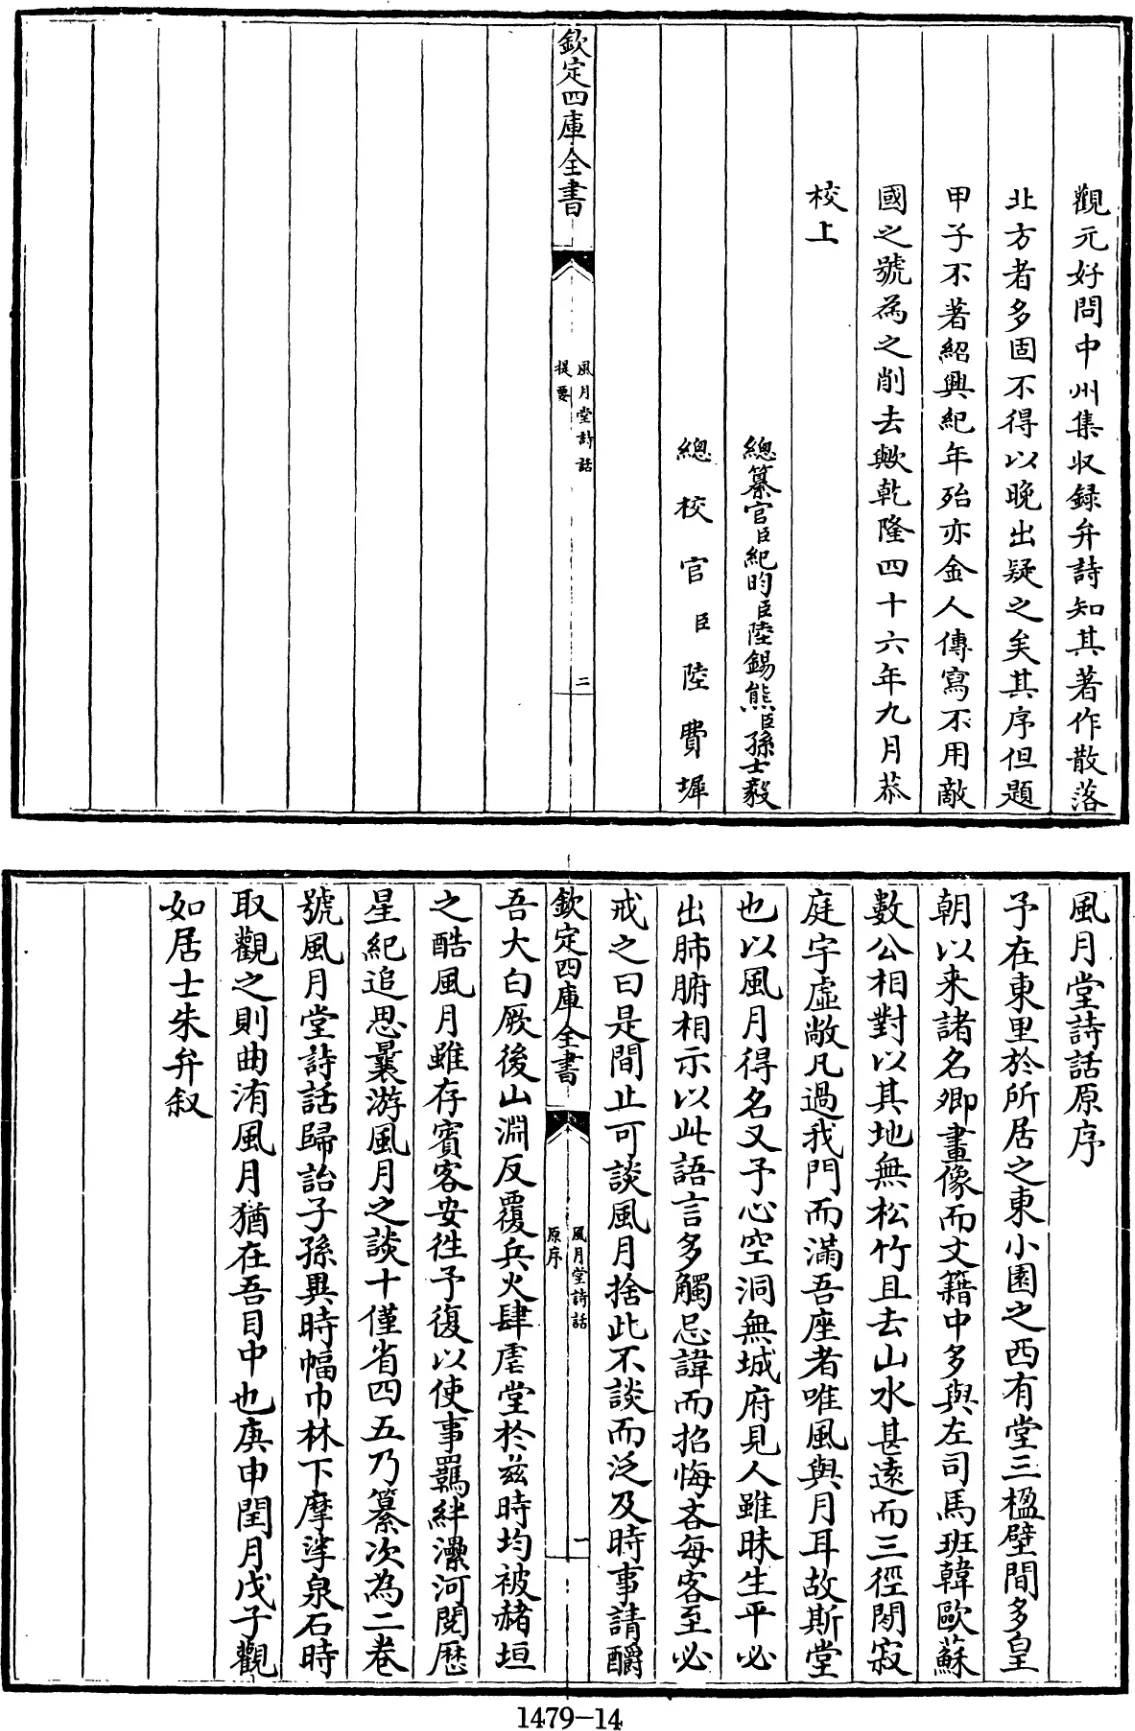 觀元好問中州集收録弁詩知其著作散落
北方者多固不得以晚出疑之矣其序但題
甲子不著紹興紀年殆亦金人傳寫不用敵
國之號為之削去歟乾隆四十六年九月恭
校上
總纂官臣紀昀臣陸錫熊臣孫士毅
總校官臣陸費墀
欽定四庫全書
風月堂詩話
提要
二
風月堂詩話原序
予在東里於所居之東小園之西有堂三楹壁間多皇
朝以来諸名卿畫像而文籍中多與左司馬班韓歐蘇
數公相對以其地無松竹且去山水甚遠而三徑閒寂
庭宇虛敞凡過我門而滿吾座者唯風與月耳故斯堂
也以風月得名又予心空洞無城府見人雖昧生平必
出肺腑相示以此語言多觸忌諱而招悔吝每客至必
戒之曰是間止可談風月捨此不談而泛及時事請釂
欽定四庫全書
風月堂詩話
原序
一
吾大白厥後山淵反覆兵火肆虐堂於兹時均被赭垣
之酷風月雖存賓客安徃予復以使事羈絆灤河閱歷
星紀追思曩游風月之談十僅省四五乃纂次為二卷
號風月堂詩話歸詒子孫異時幅巾林下摩挲泉石時
取觀之則曲洧風月猶在吾目中也庚申閏月戊子觀
如居士朱弁叙
1479-14